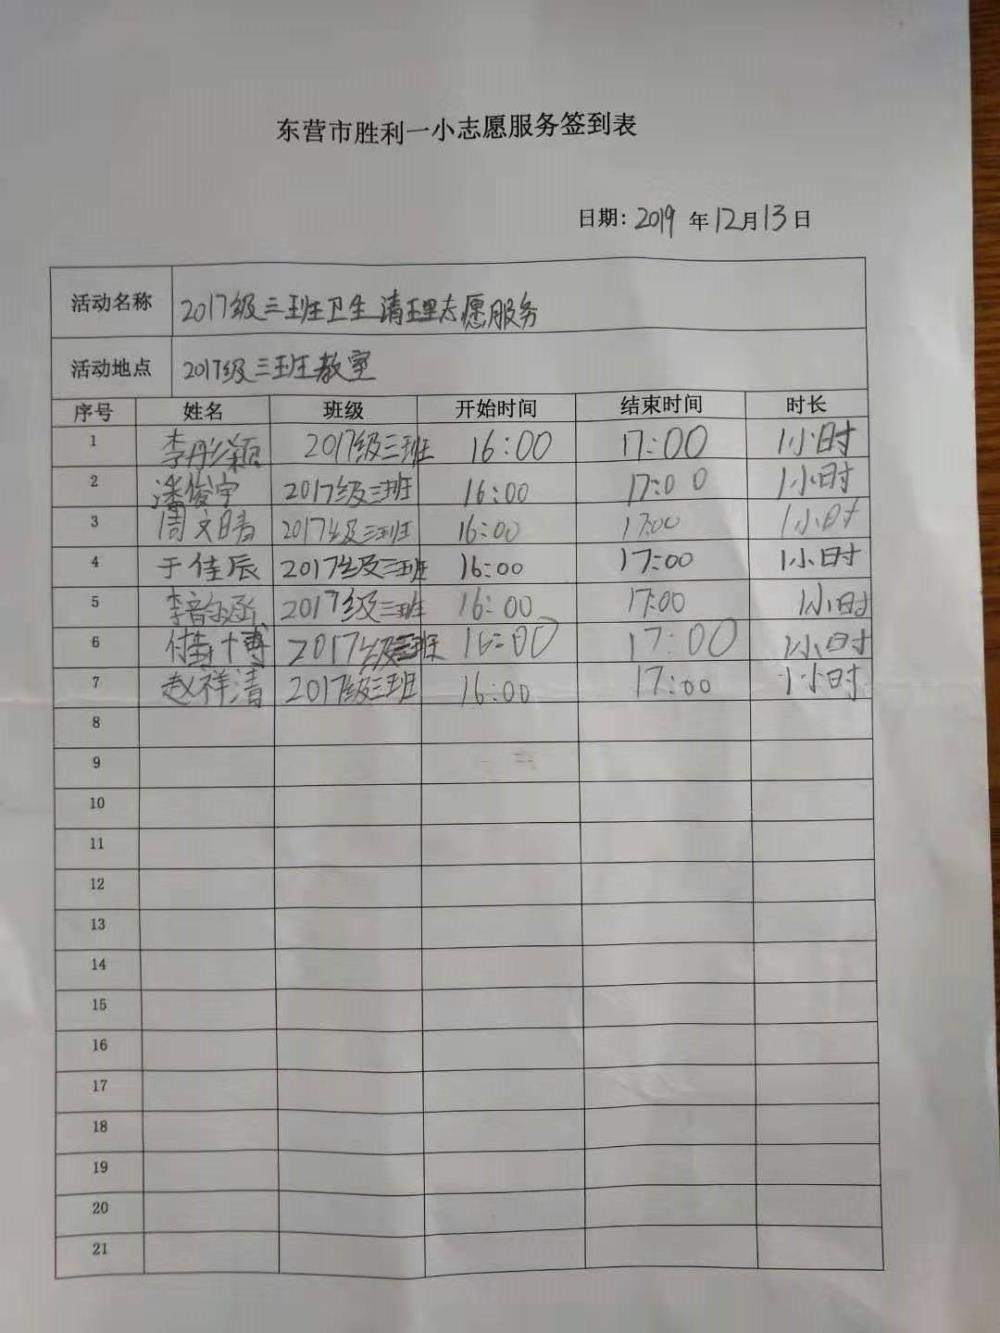 东营市胜利一小志愿服务签到表
日期：2019 年 12月 13日
活动名称 2017级三班卫生清理志愿服务
活动地点 2017级三班教室
序号 姓名 班级 开始时间 结束时间 时长
1 李彤颖 2017级三班 16:00 17:00 1小时
2 潘俊宇 2017级三班 16:00 17:00 1小时
3 周文晴 2017级三班 16:00 17:00 1小时
4 于佳辰 2017级三班 16:00 17:00 1小时
5 李韵涵 2017级三班 16:00 17:00 1小时
6 2017级三班 16:00 17:00 1小时
7 赵祥清 2017级三班 16:00 17:00 1小时
8
9
10
11
12
13
14
15
16
17
18
19
20
21